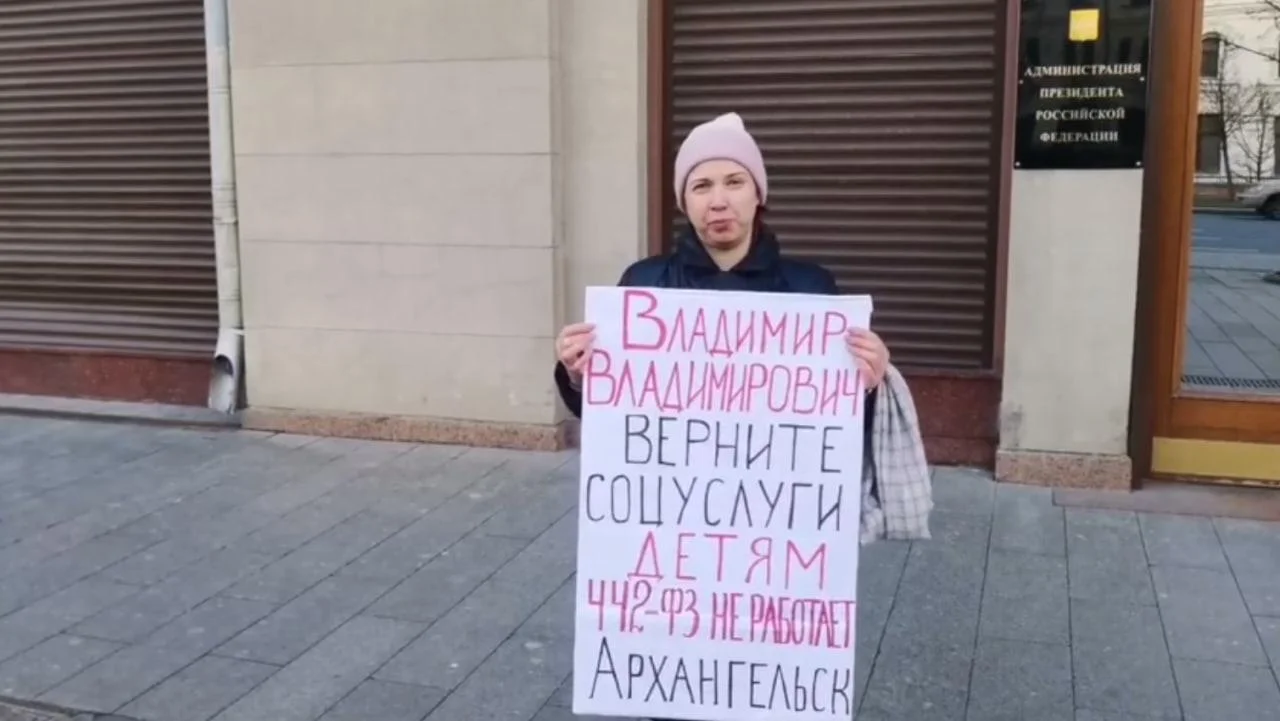 АДМИНИСТРАЦИЯ
ПРЕЗИДЕНТА
РОССИЙСКОЙ
ФЕДЕРАЦИИ
ВЛАДИМИР
ВЛАДИМИРОВИЧ
ВЕРНИТЕ
СОЦУСЛУГИ
ДЕТЯМ
442-ФЗ НЕ РАБОТАЕТ
АРХАНГЕЛЬСК